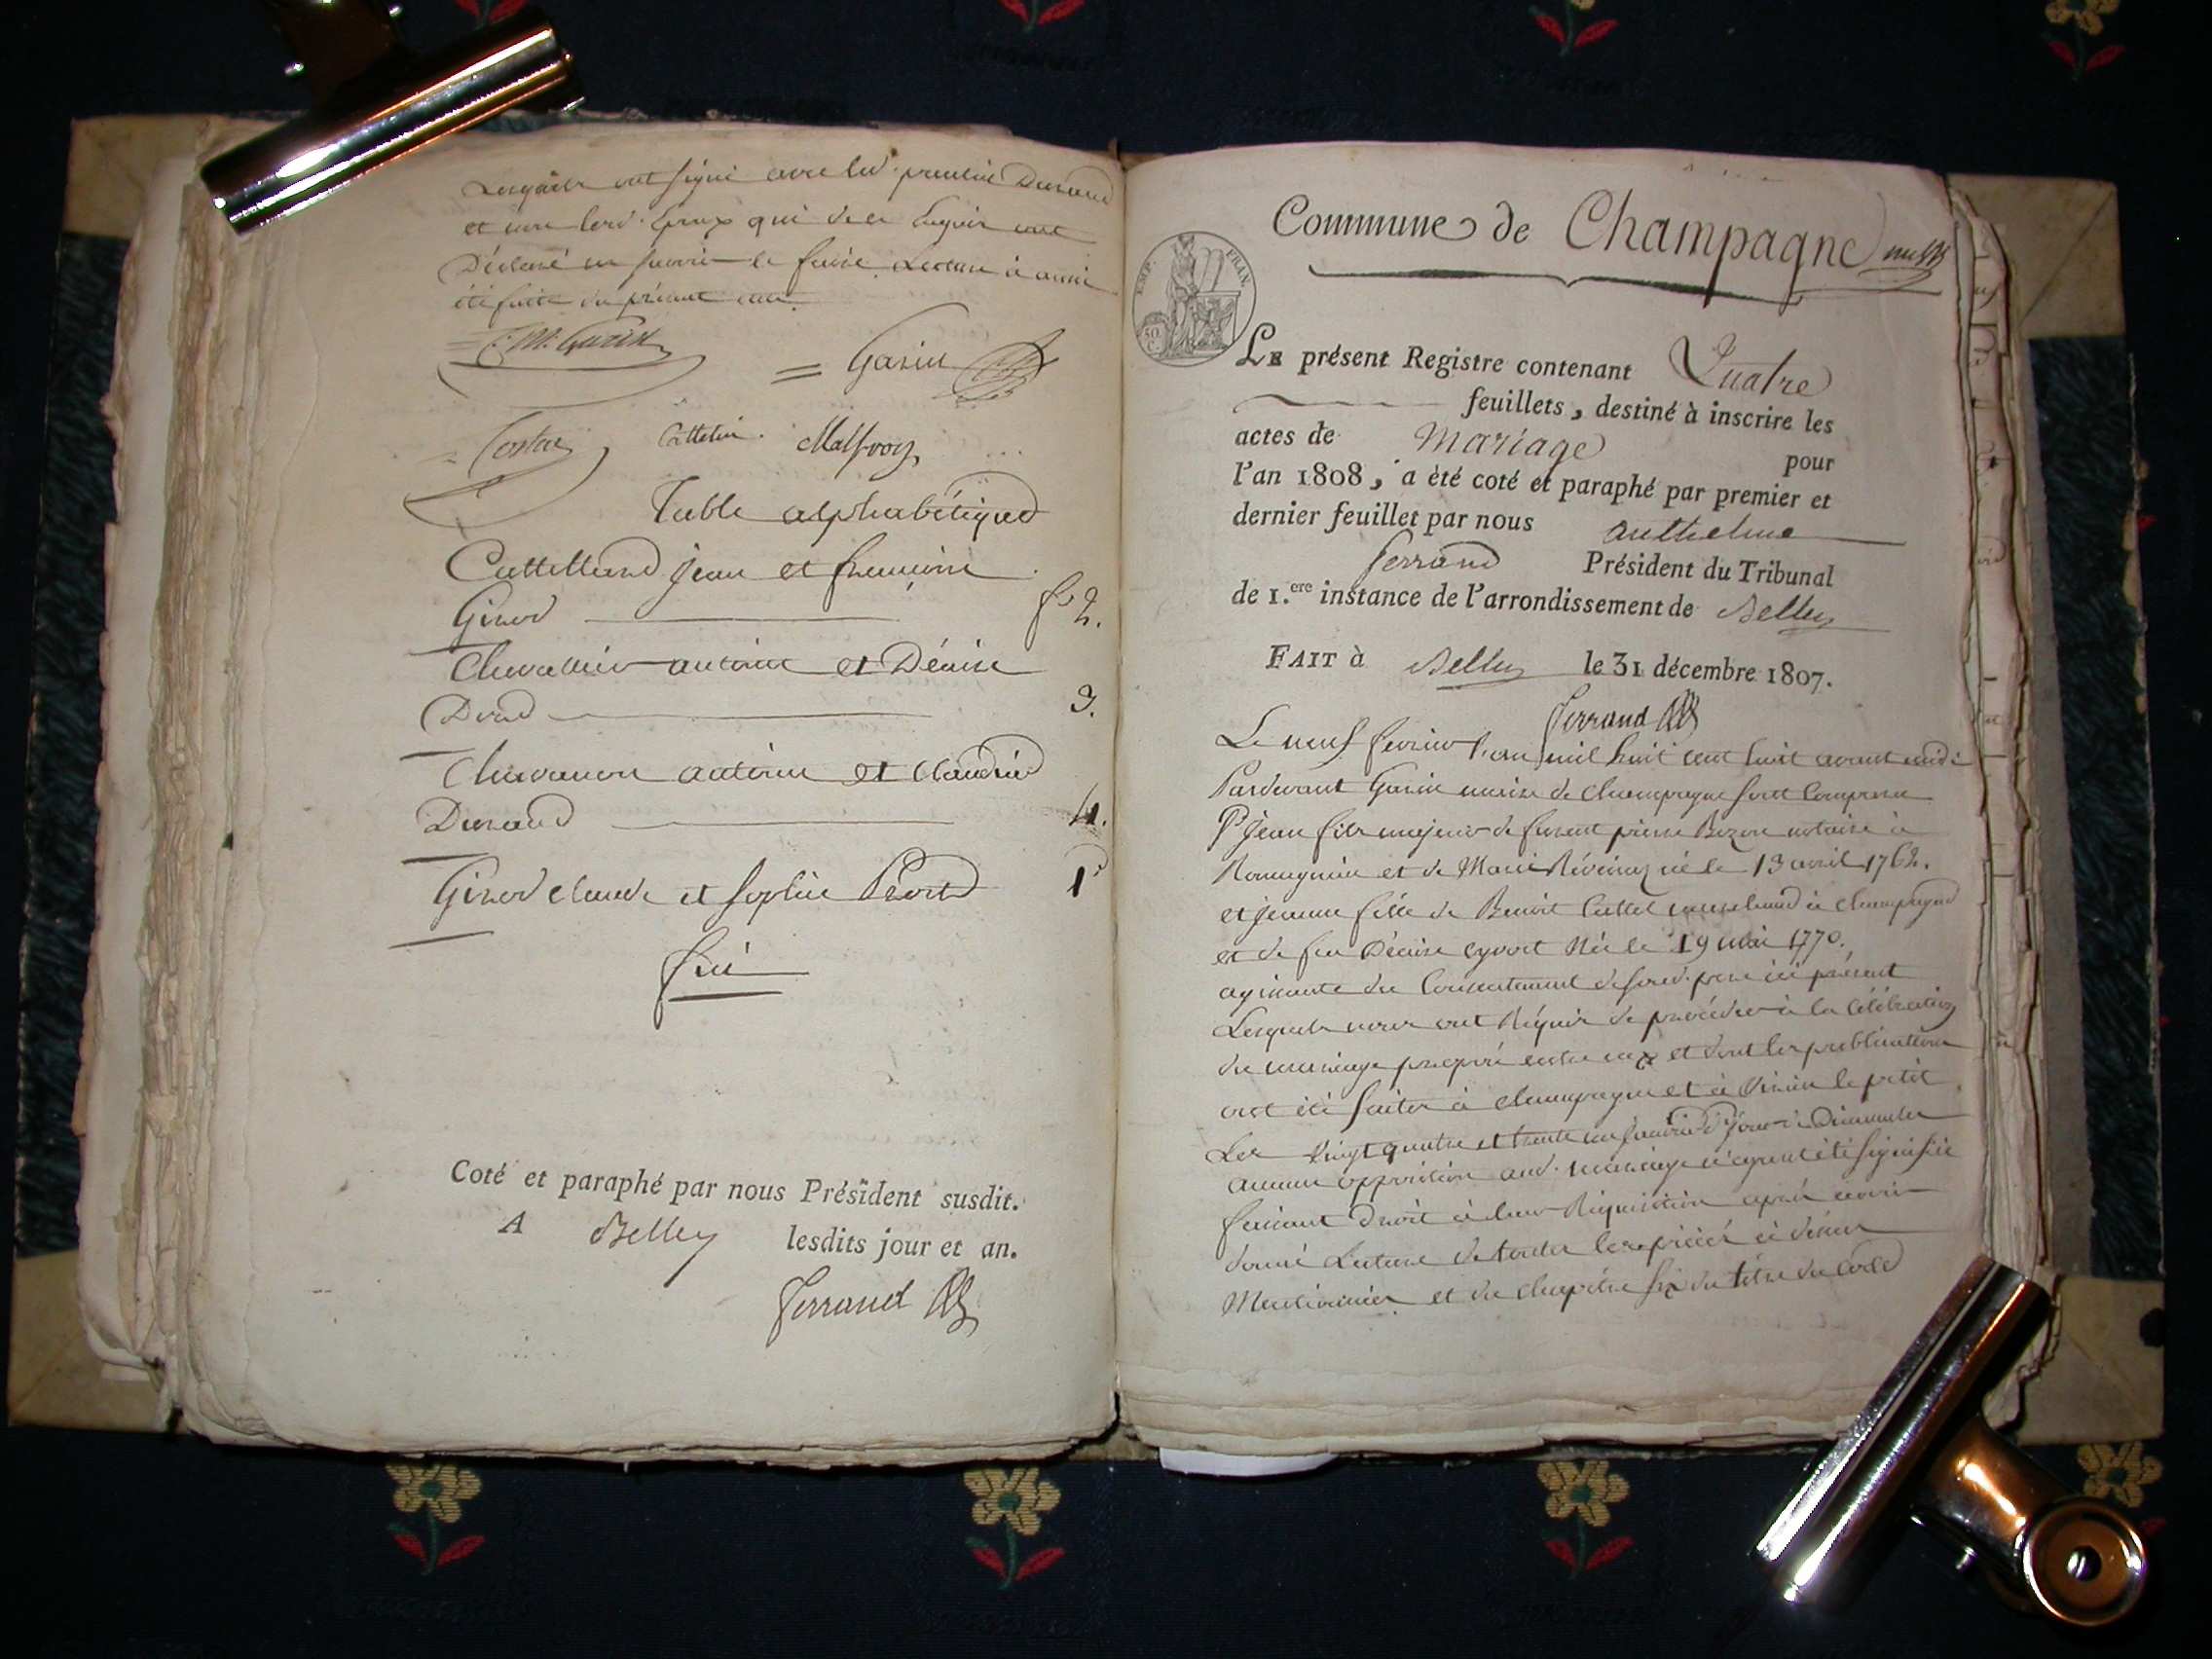 Lesquels ont signé avec led. premier Durand
et non lesd. Epoux qui de ce Enquis ont
Déclaré ne savoir le faire. Lecture à aussi
été faite du présent acte
C. M. Garin
Garin
Costaz Cattelin. Malfroy
Table alphabétique
Cattelland Jean et françoise
Girod f.o 2.
Chevallier antoine et Dénise
Dord 3.
Chavanon antoine et Claudine
Durand 4.
Girod claude et Sophie 1
fin
Coté et paraphé par nous Président susdit.
A Belley lesdits jour et an.
Ferrand
Commune de Champagne
EMP. FRAN.
50 C.
LE présent Registre contenant Quatre
feuillets, destiné à inscrire les
actes de Mariage pour
l'an 1808, a été coté et paraphé par premier et
dernier feuillet par nous anthelme
Ferrand Président du Tribunal
de 1.ere instance de l'arrondissement de Belley
FAIT à Belley le 31 décembre 1807.
Ferrand
Le neuf fevrier l'an mil huit cent huit avant midi
Pardevant Garin maire de champagne sont Comparu
Jean fils majeur de furent pierre Bozon notaire à
et de Marie né le 13 avril 1762.
et jeanne fille de Benoit Cattel marchand à champagne
et de feu Dénise eyvort Née le 19 mai 1770.
agissante du Consentement de sond. pere ici présent
Lesquels nous ont Réquis de procéder à la célébration
du mariage projetté entre eux et dont les publications
ont été faites à champagne et à Virieu le petit
Les vingt quatre et trente un janvier d.r jours de Dimanche
aucune opposition aud. mariage n'ayant été signifiée
faisant Droit à leur Réquisition après avoir
donné Lecture de toutes les pièces ci dessus
Mentionnées et du chapitre six du titre du Code